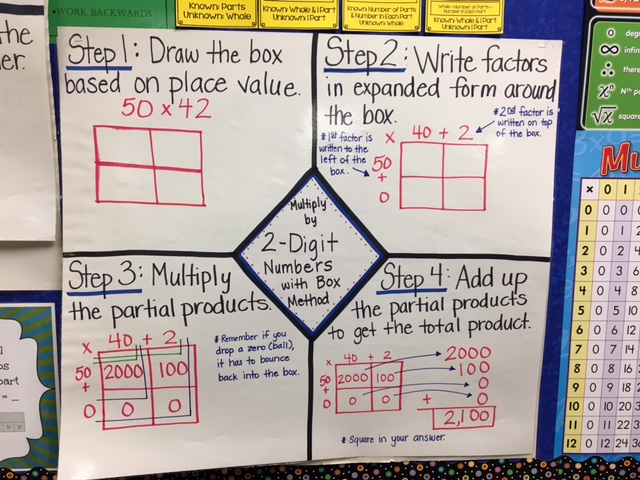 WORK BACKWARDS
Known: Parts
Unknown: Whole
Known: Whole & 1 Part
Unknown: 1 Part
Known: Number of Parts
& Number in Each Part
Unknown: Whole
Known: Whole & 1 Part
Unknown: 1 Part
the
er.
Step 1: Draw the box
based on place value.
50 x 42
Step 2: Write factors
in expanded form around
the box.
* 1st factor is
written to the
left of the
box.
* 2nd factor is
written on top
of the box.
x 40 + 2
50
+
0
Multiply
by
2-Digit
Numbers
with Box
Method.
Step 3: Multiply
the partial products.
x 40 + 2
50 2000 100
+
0 0 0
* Remember if you
drop a zero (ball),
it has to bounce
back into the box.
Step 4: Add up
the partial products
to get the total product.
x 40 + 2
50 2000 100
+
0 0 0
2000
100
0
+ 0
2,100
* Square in your answer.
0 degr
∞ infin
∴ there
xⁿ Nth po
√x square
Mu
x 0 1
0 0 0
1 0 1
2 0 2
3 0 3
4 0 4
5 0 5
6 0 6
7 0 7
8 0 8
9 0 9
10 0 10
11 0 11 22 3
12 0 12 24 3